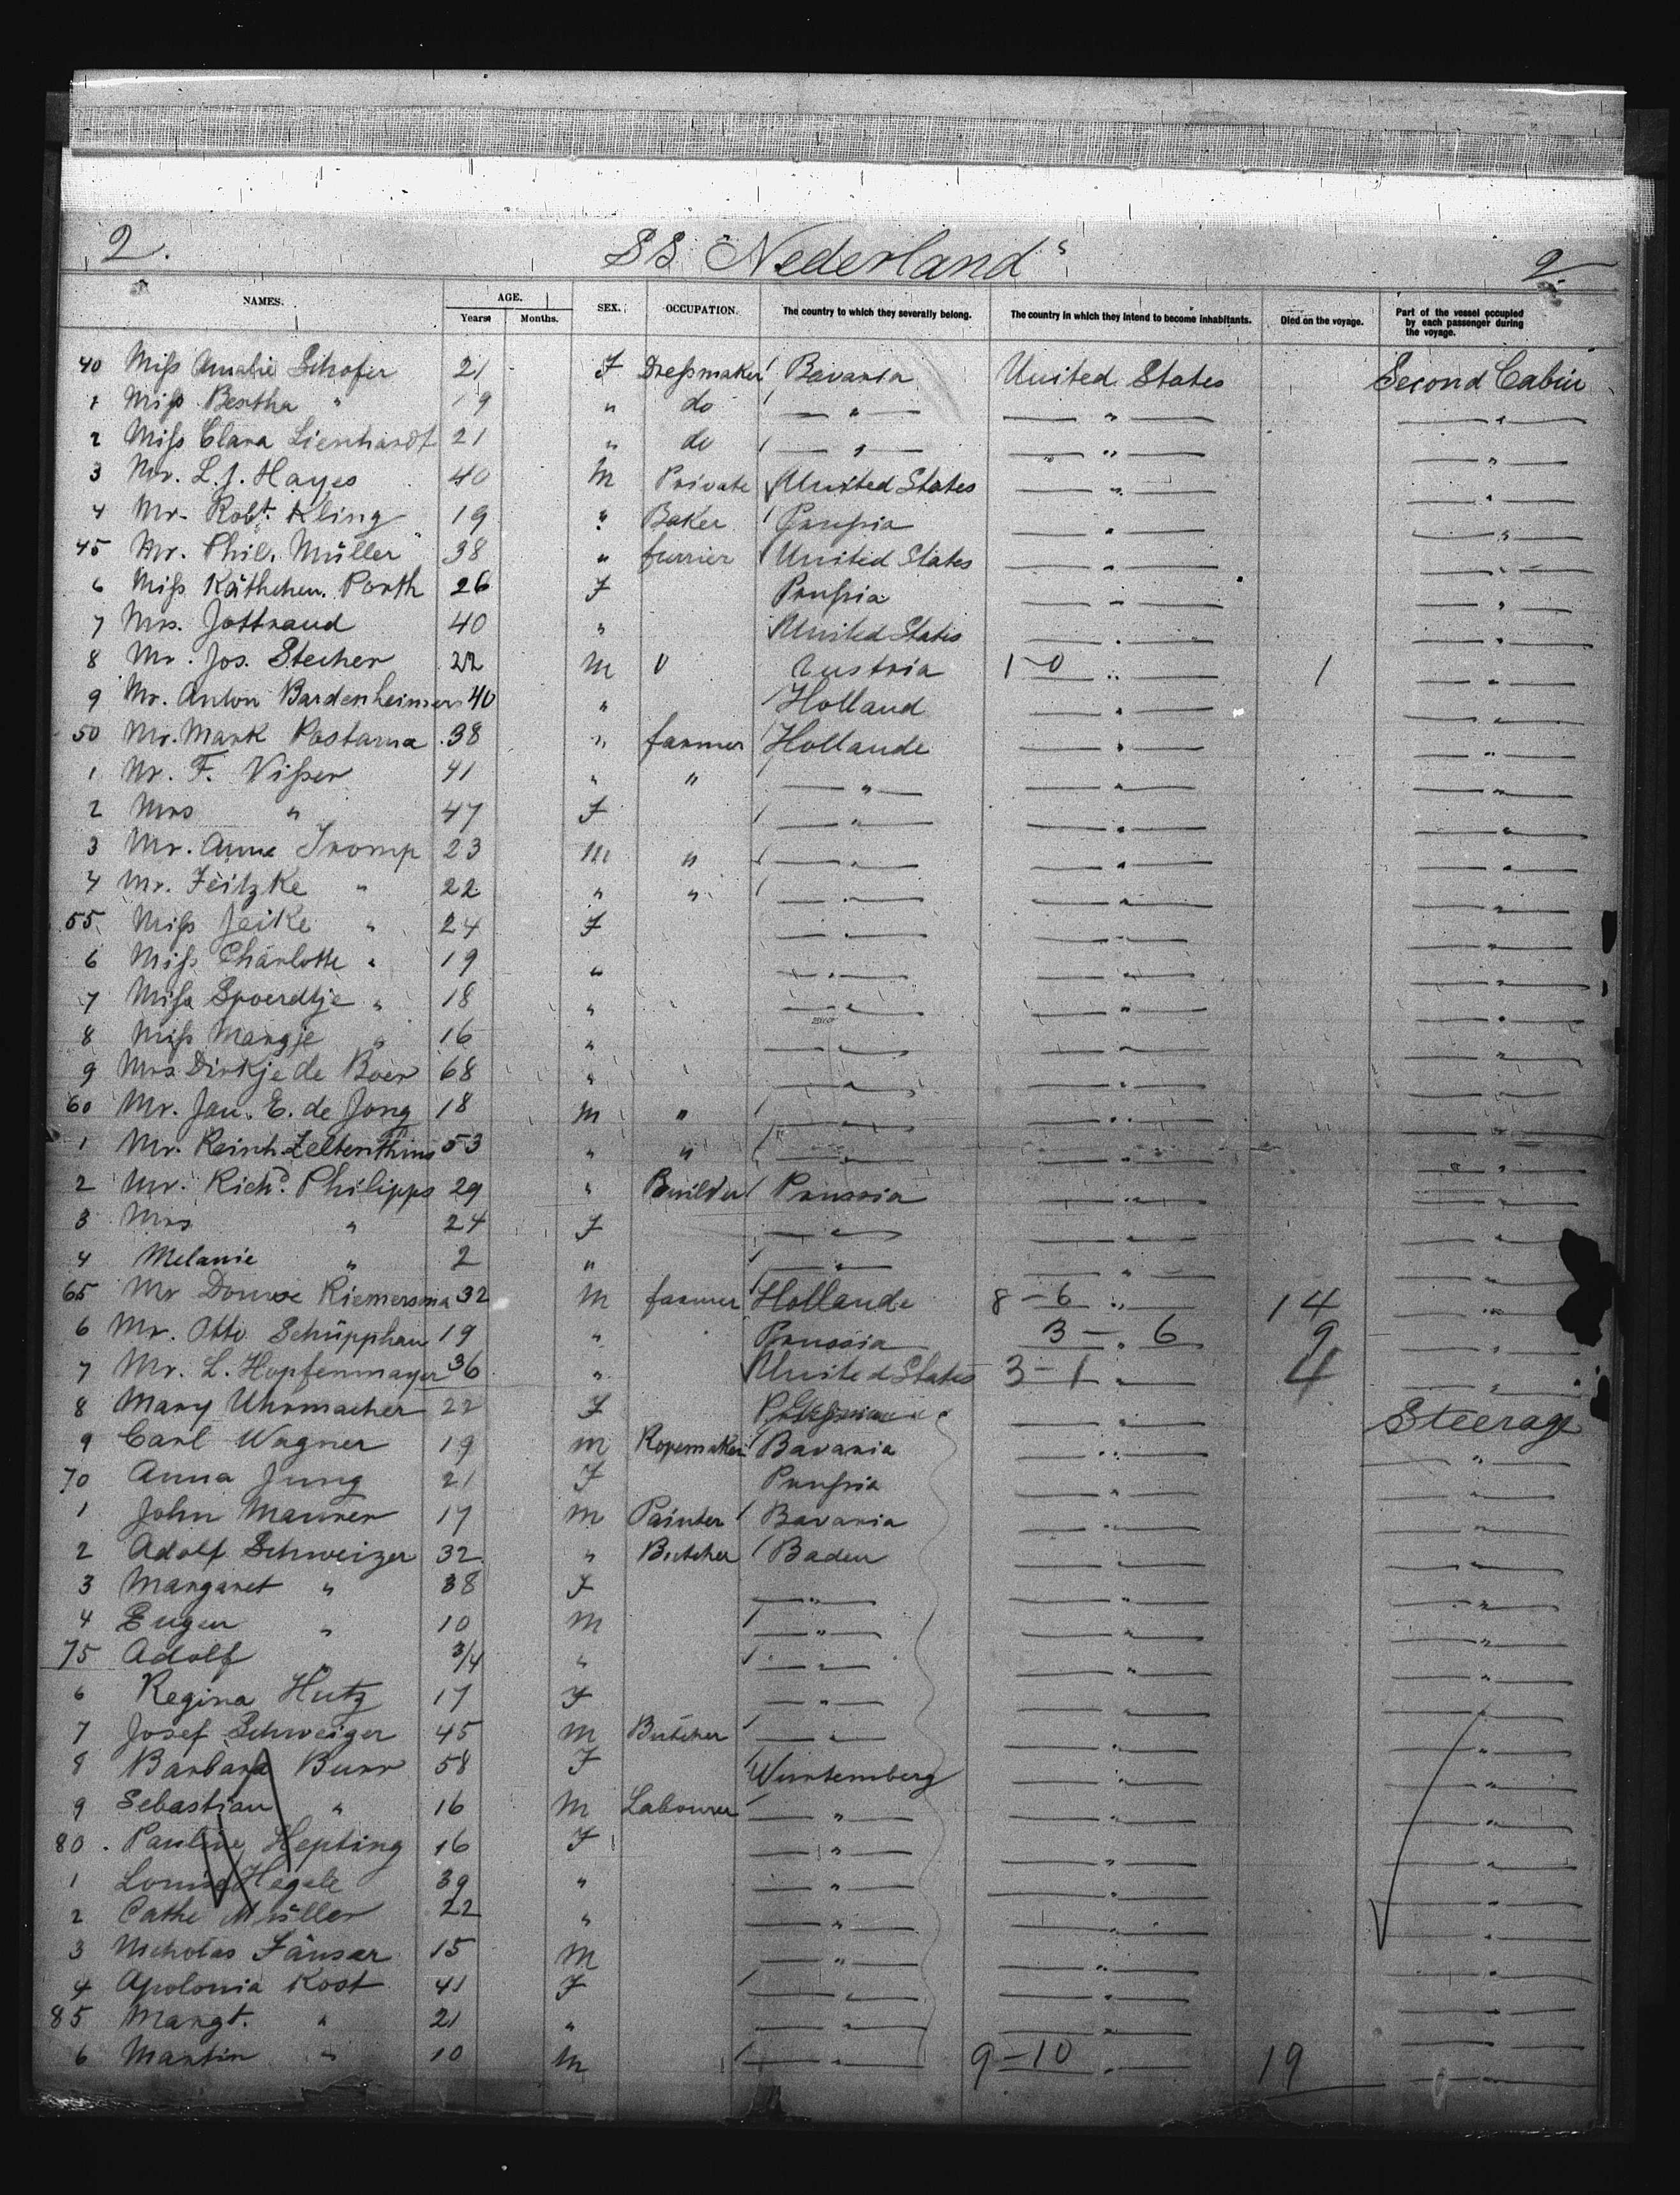 2. SS Nederland" 2
NAMES. AGE. SEX. OCCUPATION. The country to which they severally belong. The country in which they intend to become inhabitants. Died on the voyage. Part of the vessel occupied by each passenger during the voyage.
Years Months.
40 Miss Amalie Schofer 21 F Dressmaker Bavaria United States Second Cabin
1 Miss Bertha " 19 " do — " — — " — — " —
2 Miss Clara Lienhardt 21 " do — " — — " — — " —
3 Mr. L. J. Hayes 40 M Private United States — " — — " —
4 Mr. Robt. Kling 19 " Baker Prussia — " — — " —
45 Mr. Phil. Müller 38 " furrier United States — " — — " —
6 Miss Käthchen Porth 26 F Prussia — " — — " —
7 Mrs. Jottrand 40 " United States — " — — " —
8 Mr. Jos. Stecher 22 M Austria 1-0 — " — 1 — " —
9 Mr. Anton Bardenheimer 40 " Holland — " — — " —
50 Mr. Mark Postama 38 " farmer Hollande — " — — " —
1 Mr. F. Visser 41 " " — " — — " — — " —
2 Mrs " 47 F — " — — " — — " —
3 Mr. Anne Tromp 23 M " — " — — " — — " —
4 Mr. Feitzke " 22 " " — " — — " — — " —
55 Miss Jeike " 24 F — " — — " — — " —
6 Miss Charlotte " 19 " — " — — " — — " —
7 Miss Spoerdtje " 18 " — " — — " — — " —
8 Miss Mangje " 16 " — " — — " — — " —
9 Mrs Dirkje de Boer 68 " — " — — " — — " —
60 Mr. Jan. E. de Jong 18 M " — " — — " — — " —
1 Mr. Reinh. 53 " " — " — — " — — " —
2 Mr. Richd. Philipps 29 " Builder Prussia — " — — " —
3 Mrs " 24 F — " — — " — — " —
4 Melanie " 2 " — " — — " — — " —
65 Mr Douwe Riemersma 32 M farmer Hollande 8-6 — " — 14 — " —
6 Mr. Otto Schüpphau 19 " Prussia 3 - 6 9 — " —
7 Mr. L. Hopfenmayer 36 " United States 3-1 — " — 4 — " —
8 Mary Uhrmacher 22 F — " — Steerage
9 Carl Wagner 19 M Ropemaker Bavaria — " — — " —
70 Anna Jung 21 F Prussia — " — — " —
1 John Maurer 17 M Painter Bavaria — " — — " —
2 Adolf Schweizer 32 " Butcher Baden — " — — " —
3 Margaret " 38 F — " — — " — — " —
4 Eugen " 10 M — " — — " — — " —
75 Adolf " 3/4 " — " — — " — — " —
6 Regina Hutz 17 F — " — — " — — " —
7 Josef Schweiger 45 M Butcher — " — — " — — " —
8 Barbara Burr 58 F Wurtemberg — " — — " —
9 Sebastian " 16 M Labourer — " — — " — — " —
80 Pauline Hepting 16 F — " — — " — — " —
1 Louise Hegele 39 " — " — — " — — " —
2 Cathe Müller 22 " — " — — " — — " —
3 Nicholas Fänsar 15 M — " — — " — — " —
4 Apolonia Kost 41 F — " — — " — — " —
85 Margt. " 21 " — " — — " — — " —
6 Martin " 10 M — " — 9-10 — " — 19 — " —